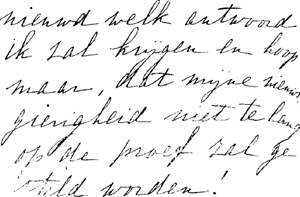 nieuwd welk antwoord
ik zal krijgen en hoop
maar, dat mijne nieuws
gierigheid niet te lang
op de proef zal ge
steld worden!